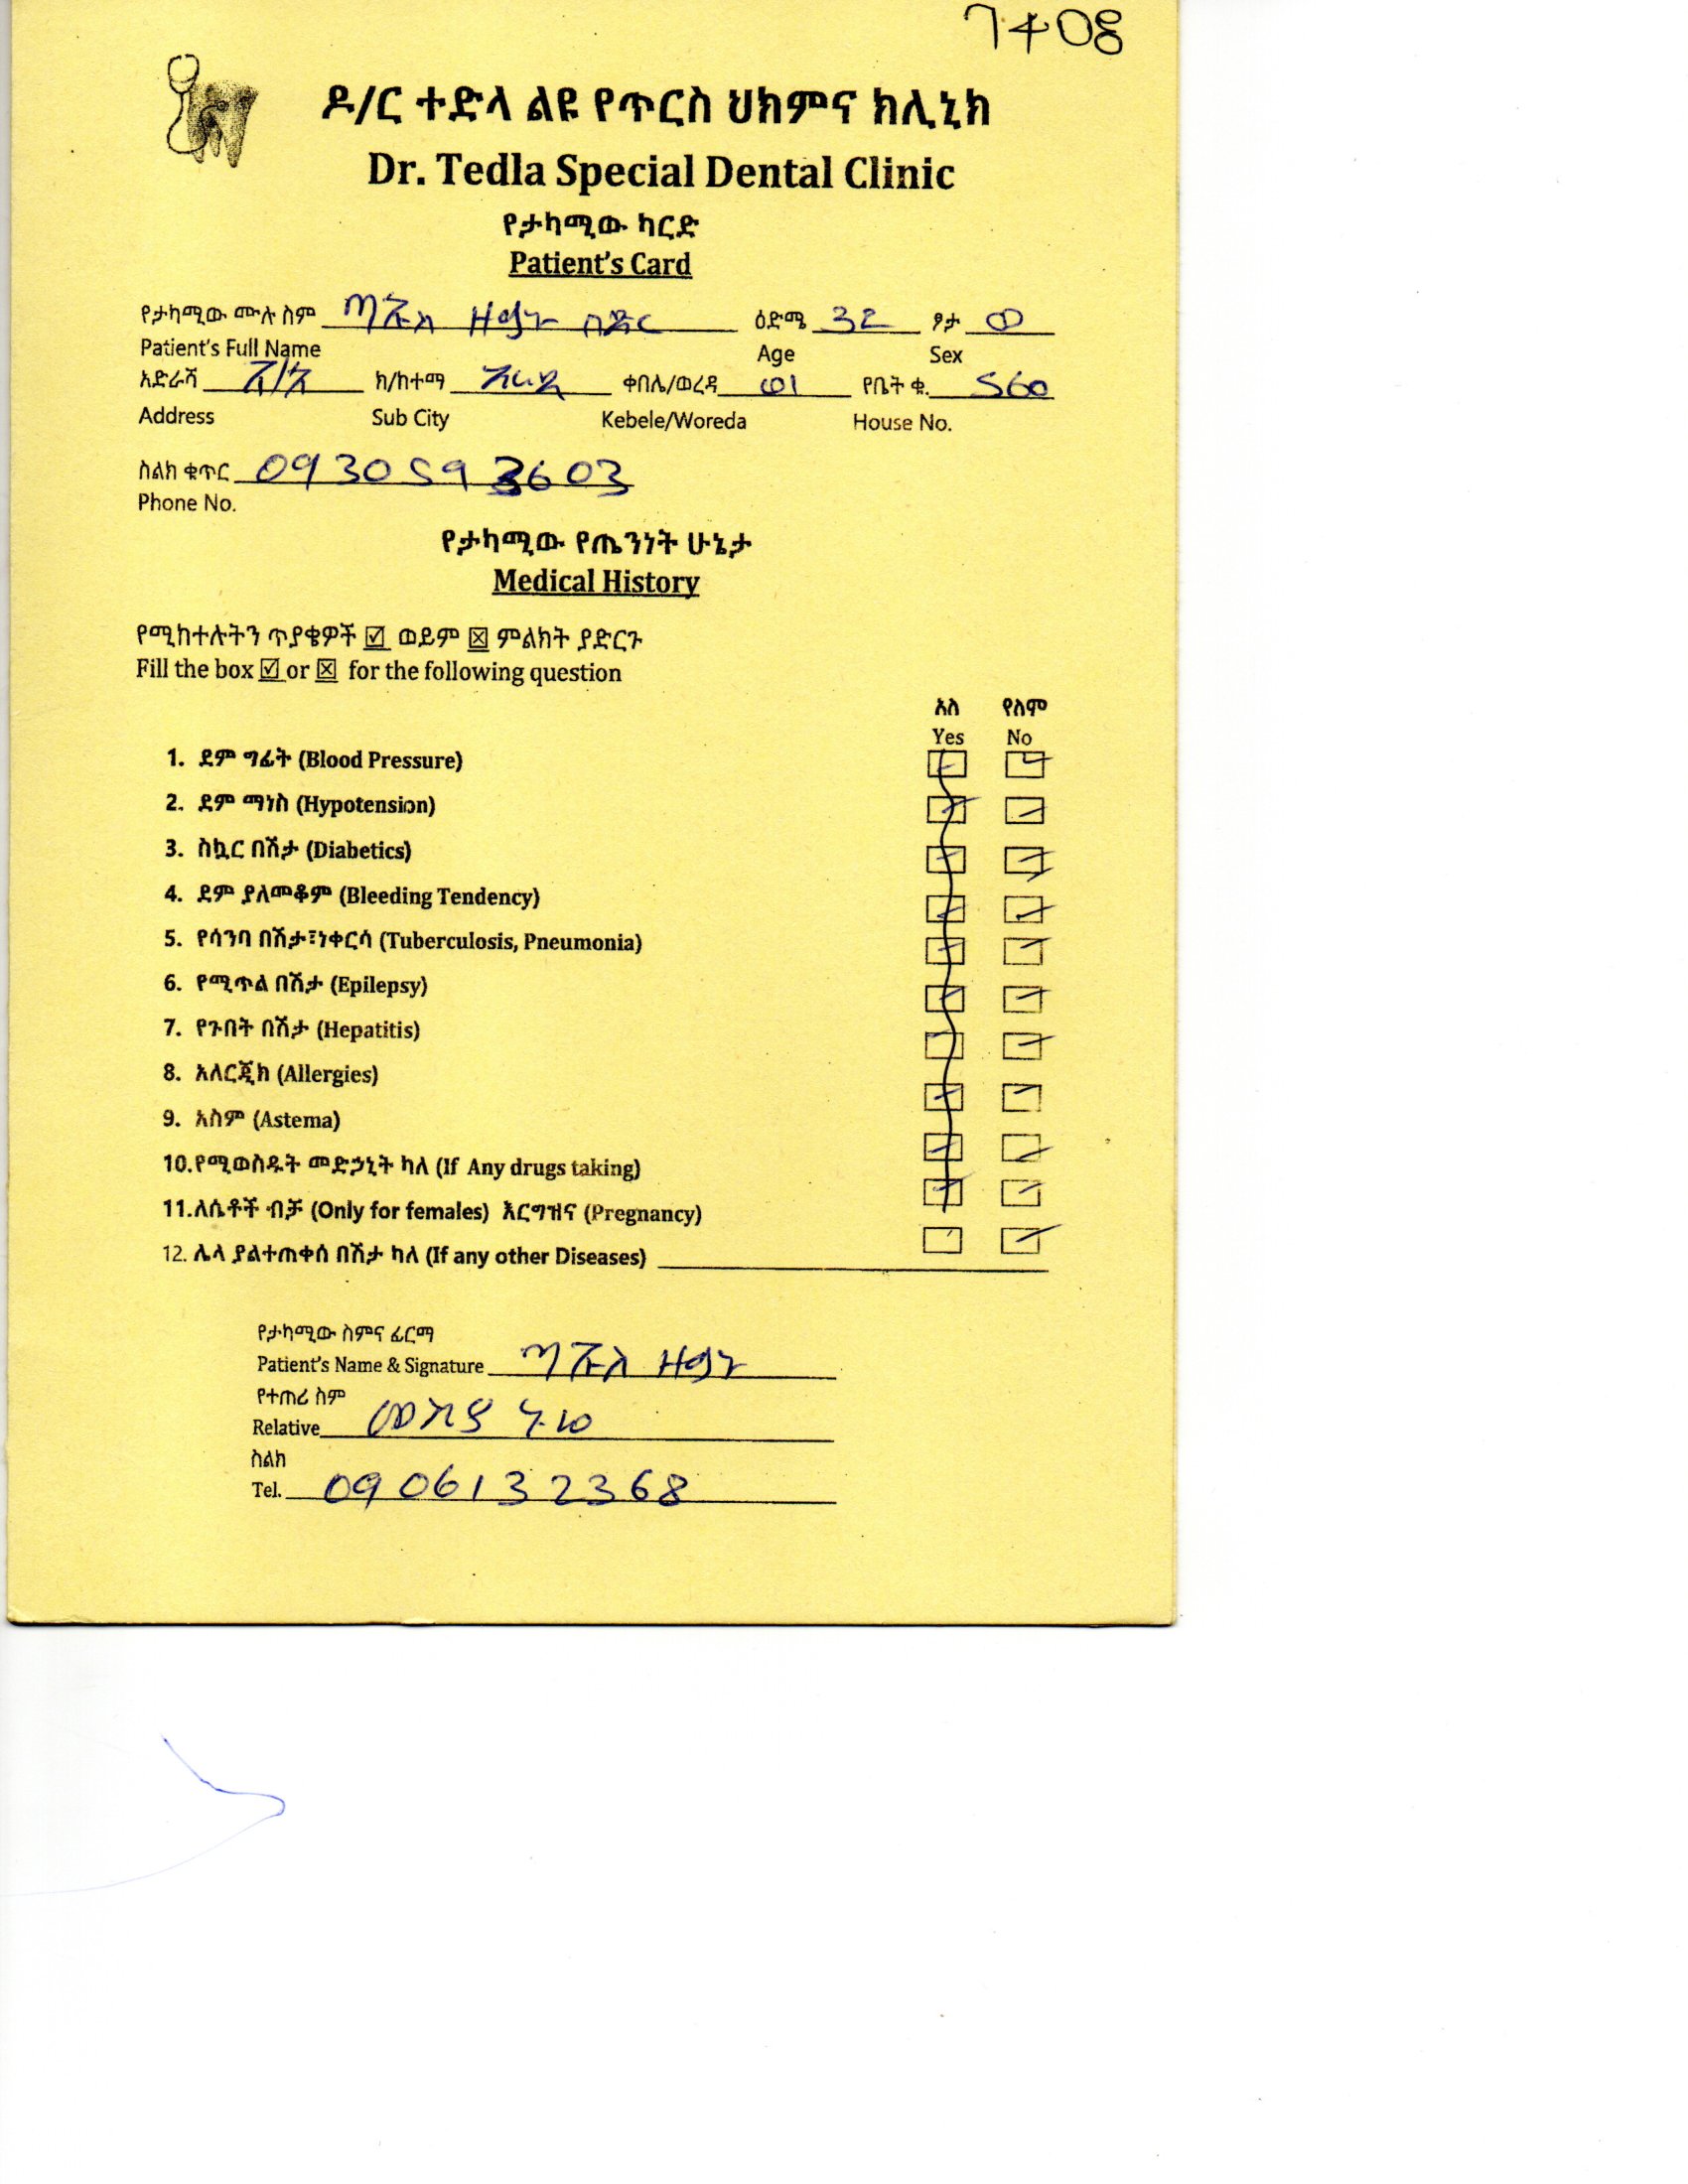 7408
ዶ/ር ተድላ ልዩ የጥርስ ህክምና ክሊኒክ
Dr. Tedla Special Dental Clinic
የታካሚው ካርድ
Patient's Card
የታካሚው ሙሉ ስም ዕድሜ 32 ፆታ ወ
Patient's Full Name Age Sex
አድራሻ አ/አ ክ/ከተማ አራዳ ቀበሌ/ወረዳ 01 የቤት ቁ. 560
Address Sub City Kebele/Woreda House No.
ስልክ ቁጥር 0930593603
Phone No.
የታካሚው የጤንነት ሁኔታ
Medical History
የሚከተሉትን ጥያቄዎች ☑ ወይም ☒ ምልክት ያድርጉ
Fill the box ☑ or ☒ for the following question
አለ የለም
Yes No
1. ደም ግፊት (Blood Pressure)
2. ደም ማነስ (Hypotension)
3. ስኳር በሽታ (Diabetics)
4. ደም ያለመቆም (Bleeding Tendency)
5. የሳንባ በሽታ፣ነቀርሳ (Tuberculosis, Pneumonia)
6. የሚጥል በሽታ (Epilepsy)
7. የጉበት በሽታ (Hepatitis)
8. አለርጂክ (Allergies)
9. አስም (Astema)
10.የሚወስዱት መድኃኒት ካለ (If Any drugs taking)
11.ለሴቶች ብቻ (Only for females) እርግዝና (Pregnancy)
12. ሌላ ያልተጠቀሰ በሽታ ካለ (If any other Diseases)
የታካሚው ስምና ፊርማ
Patient's Name & Signature
የተጠሪ ስም
Relative
ስልክ
Tel. 0906132368